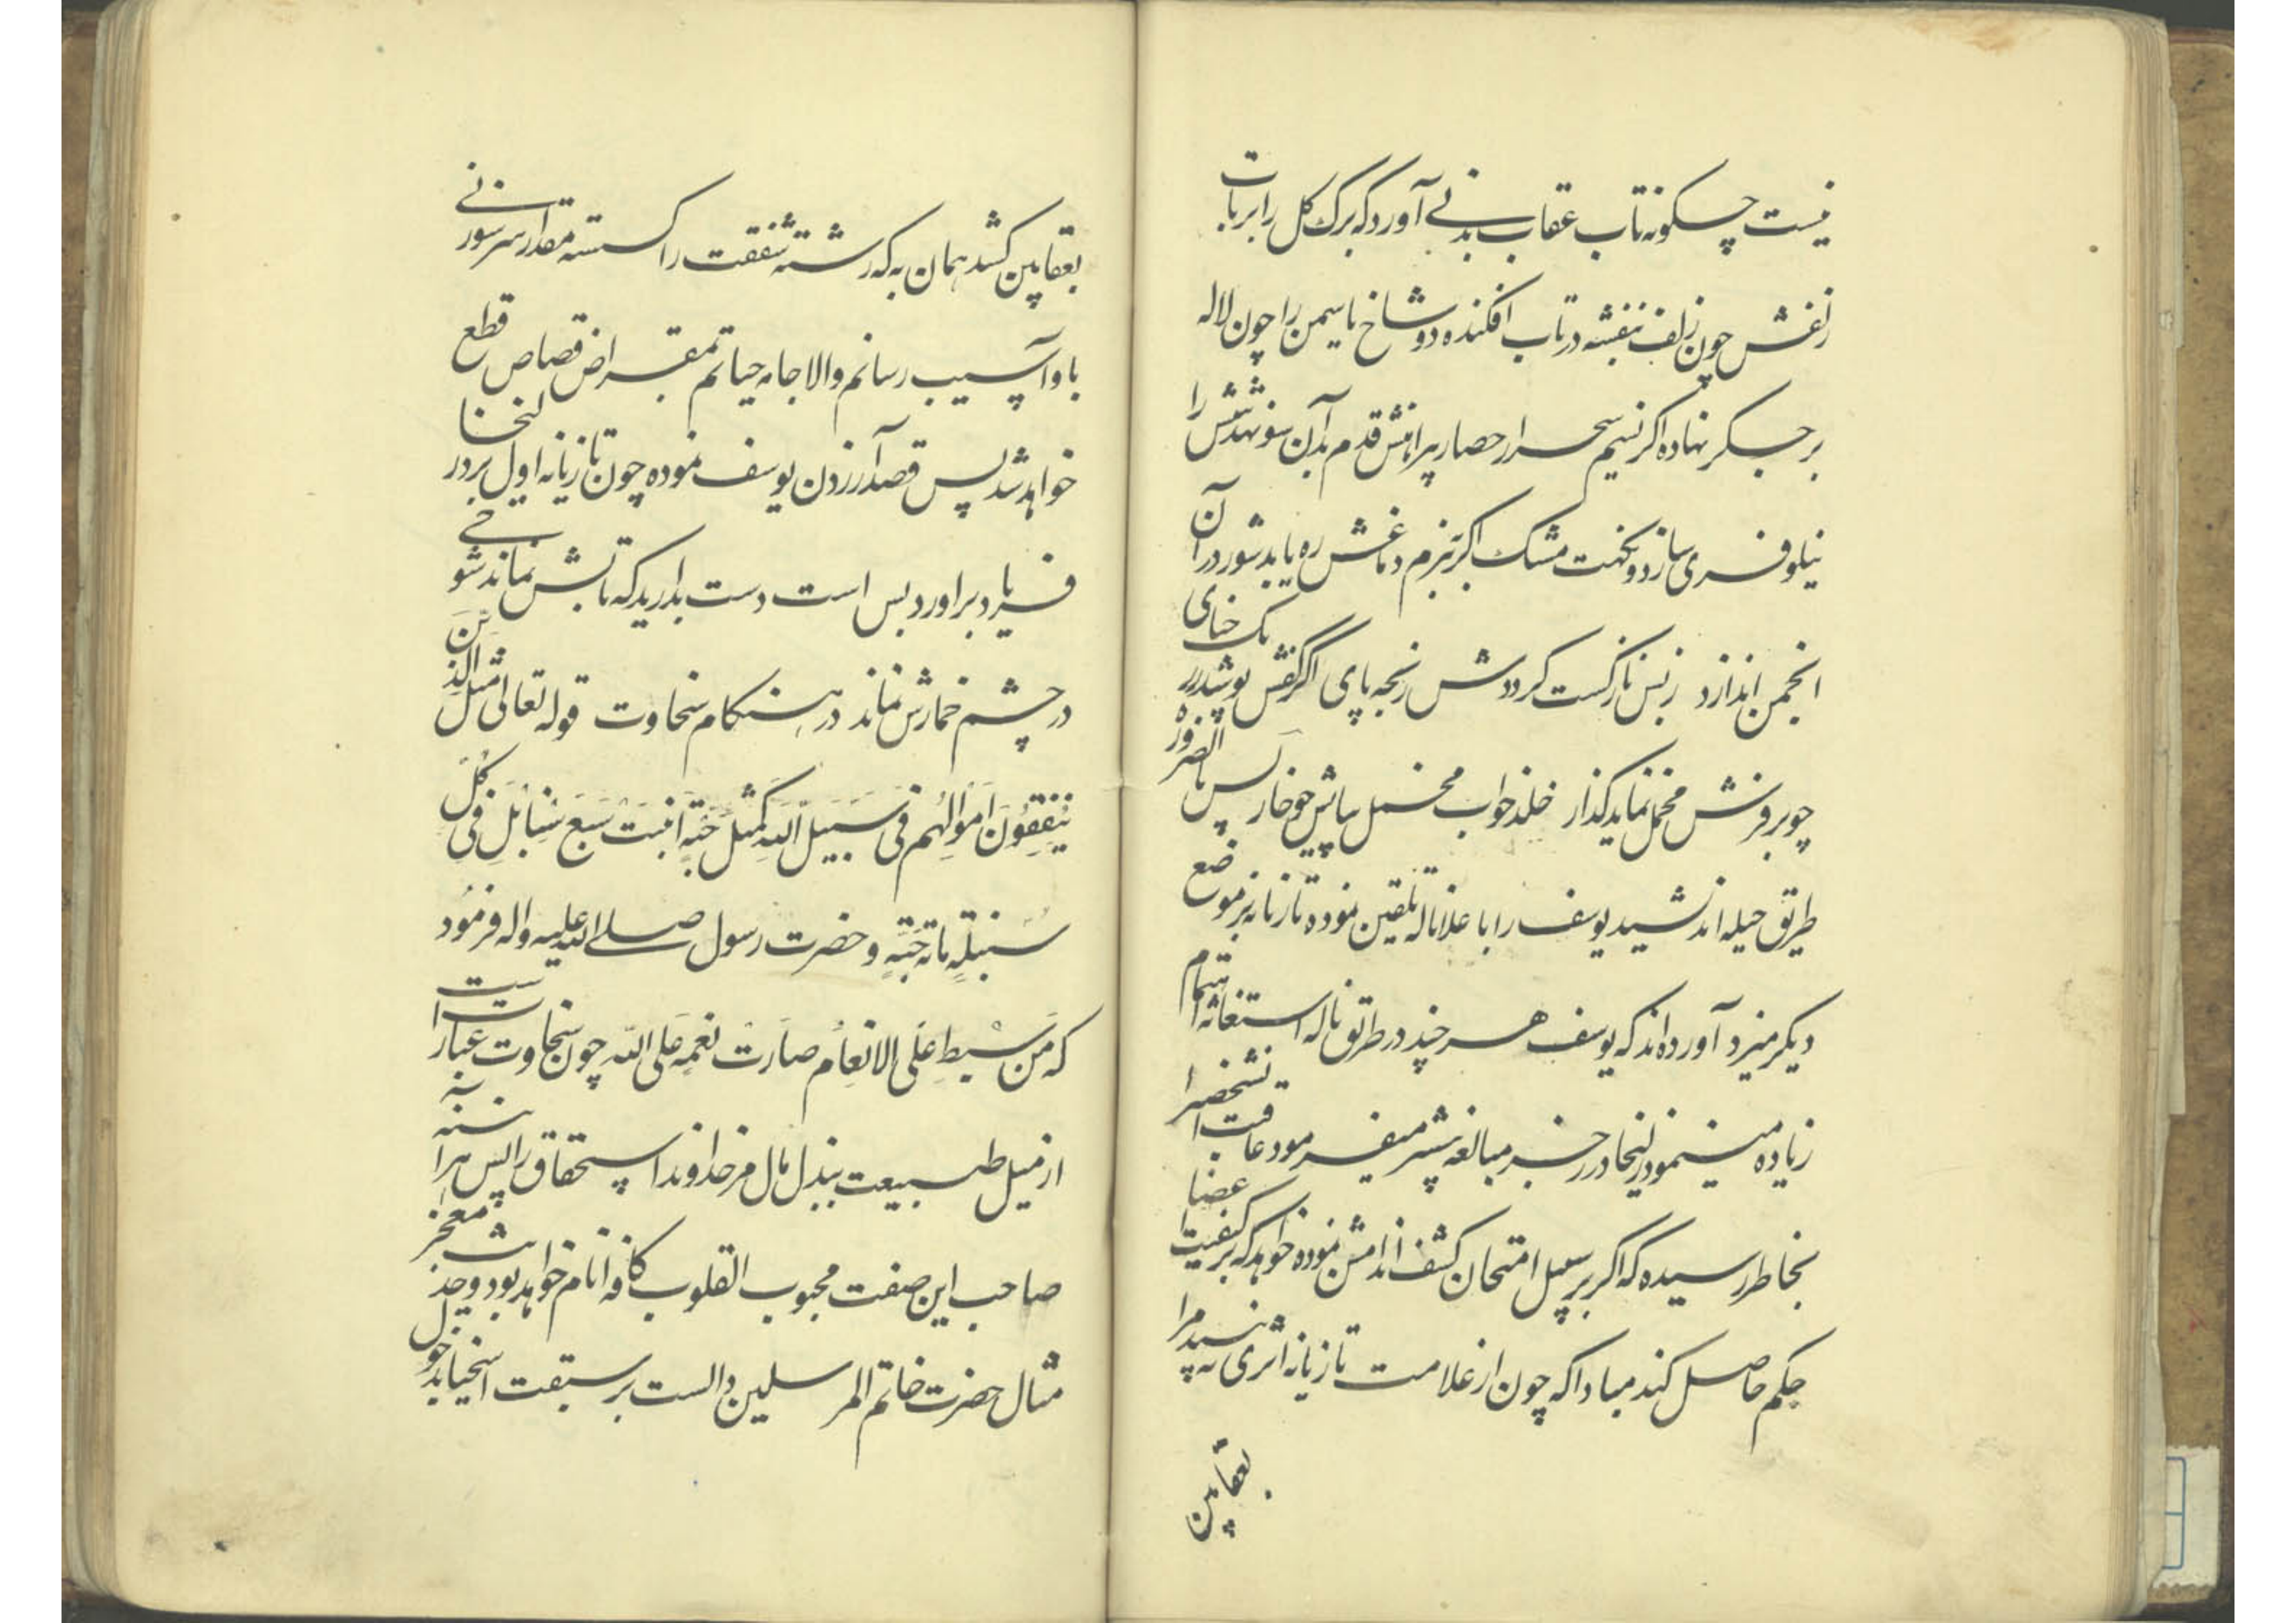 نیست چکونه تاب عقاب بدنی آورد که برک کل را بر تاب
زلفش چون زلف بنفشه در تاب افکنده دو شاخ یاسمن را چون لاله
بر جکر نهاده اکر نسیم سحر از حصار پیراهنش قدم بدان سو نهد تنش را
نیلوفری سازد و نکهت مشک اکر ببزم دماغش ره یابد شور در آن
انجمن اندازد ز بس نازکست کرددش رنجه پای اکر نقش پوشد ز رنک حنای
چو بر فرش مخمل نماید کذار خلد خواب مخمل بپایش چو خار پس بالضروره
طریق حیله اندیشید یوسف را با علانا له تلقین نموده تازیانه بر موضع
دیکر میزد آورده اند که یوسف هر چند در طریق ناله استغاثه اهتمام
زیاده مینمود زلیخا در زجر مبالغه بیشتر میفرمود عاقبت آنشخص را
بخاطر رسیده که اکر بر سبیل امتحان کشف اندامش نموده خواهد که بر کیفیت اعضا
حکم حاصل کند مبادا که چون از علامت تازیانه اثری نه بیند مرا
بعقابین
بعقابین کشد همان به که رشته شفقت را کسسته مقدار سر سوزنی
باو آسیب رسانم والا جامه حیاتم بمقراض قصاص قطع
خواهد شد پس قصد آزردن یوسف نموده چون تازیانه اول بر زد زلیخا
فریاد بر اورد بس است دست بدارید که تابش نماند شوخی
در چشم خمارش نماند در هنکام سخاوت قوله تعالی مثل الذین
ینفقون اموالهم فی سبیل الله کمثل حبة انبتت سبع سنابل فی کل
سنبلة مائة حبة و حضرت رسول صلی الله علیه و اله فرمود
که من بسیط علی الانعام صارت نعمه علی الله چون سخاوت عبارتست
از میل طبیعت ببذل مال مر خداوند استحقاق را پس هر آینه
صاحب این صفت محبوب القلوب کافه انام خواهد بود و حدیث معجز
مثال حضرت خاتم المرسلین دالست بر سبقت اسخیا بدخول